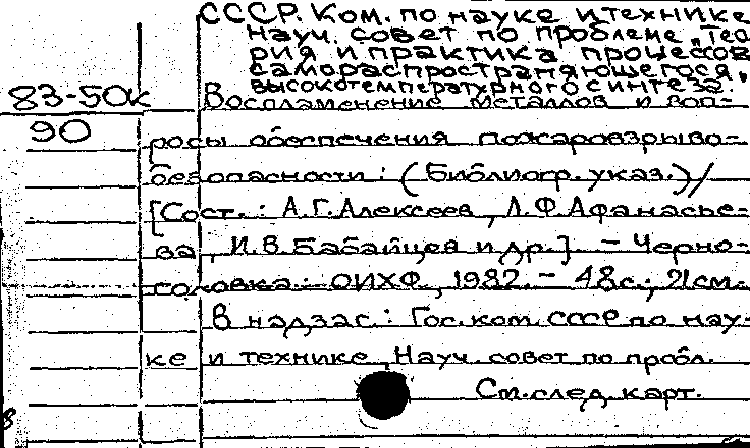 СССР. Ком. по науке и технике
Науч. совет по проблеме „Тео
рия и практика процессов
самораспространяющегося,
высокотемпературного синтеза".
83-50к Воспламенение металлов и воп-
90
росы обеспечения пожаровзрыво-
безопасности: (Библиогр. указ.)/
[Сост.: А.Г. Алексеев, Л.Ф. Афанасье-
ва, И.В. Бабайцев и др.]. - Черно-
головка: ОИХФ, 1982. - 48с.; 21см.
В надзаг.: Гос. ком. СССР по нау-
ке и технике, Науч. совет по пробл.
См. след. карт.